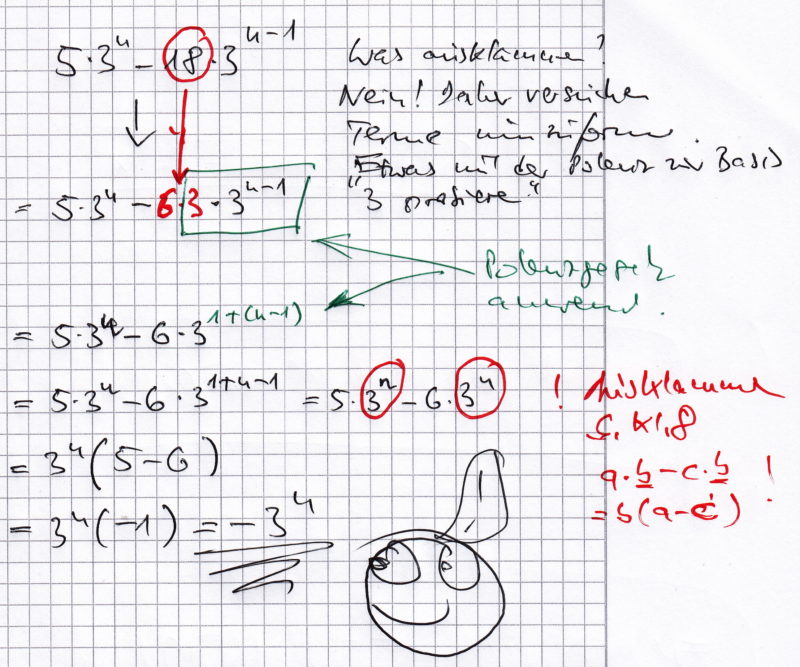 5·3ⁿ − 18·3ⁿ⁻¹
Was ausklammern?
Nein! Daher versuchen
Terme umzuformen.
"Etwas mit der Potenz zur Basis
3 passiere."
= 5·3ⁿ − 6·3·3ⁿ⁻¹
Potenzgesetz
anwend.
= 5·3ⁿ − 6·3¹⁺⁽ⁿ⁻¹⁾
= 5·3ⁿ − 6·3¹⁺ⁿ⁻¹ = 5·3ⁿ − 6·3ⁿ
! Ausklammern
s. Kl. 8
= 3ⁿ(5−6)
a·b−c·b !
= b(a−c)
= 3ⁿ(−1) = −3ⁿ